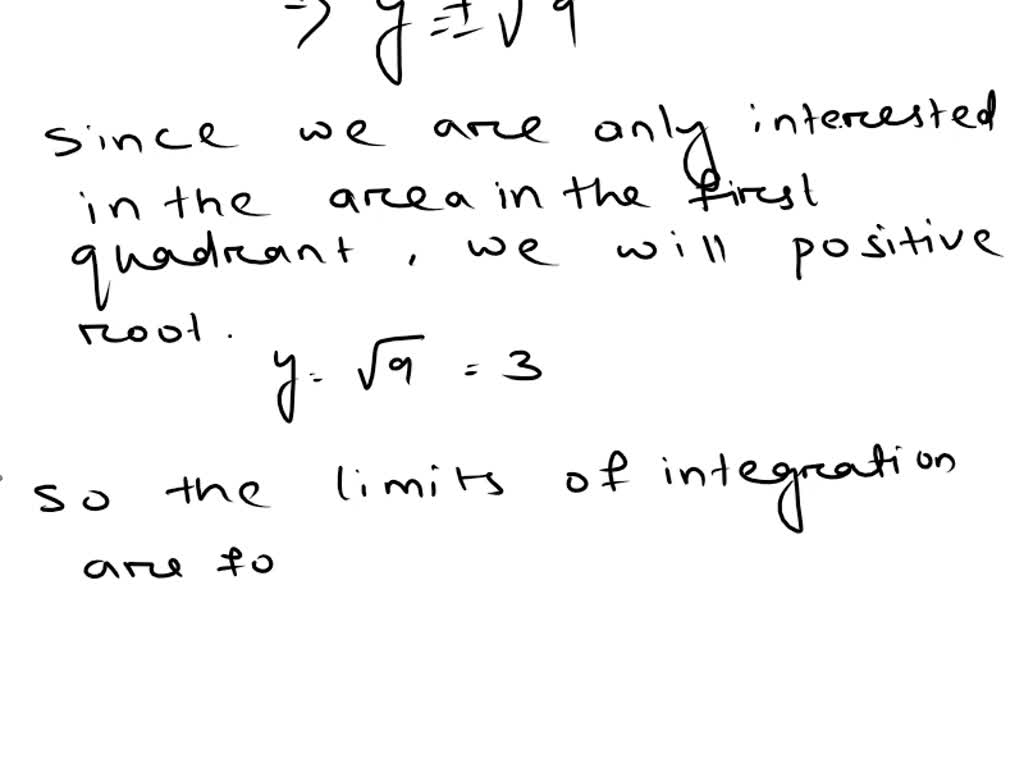 ⇒ y = ± √9
since we are only interested
in the area in the first
quadrant, we will positive
root.
y = √9 = 3
so the limits of integration
are fo